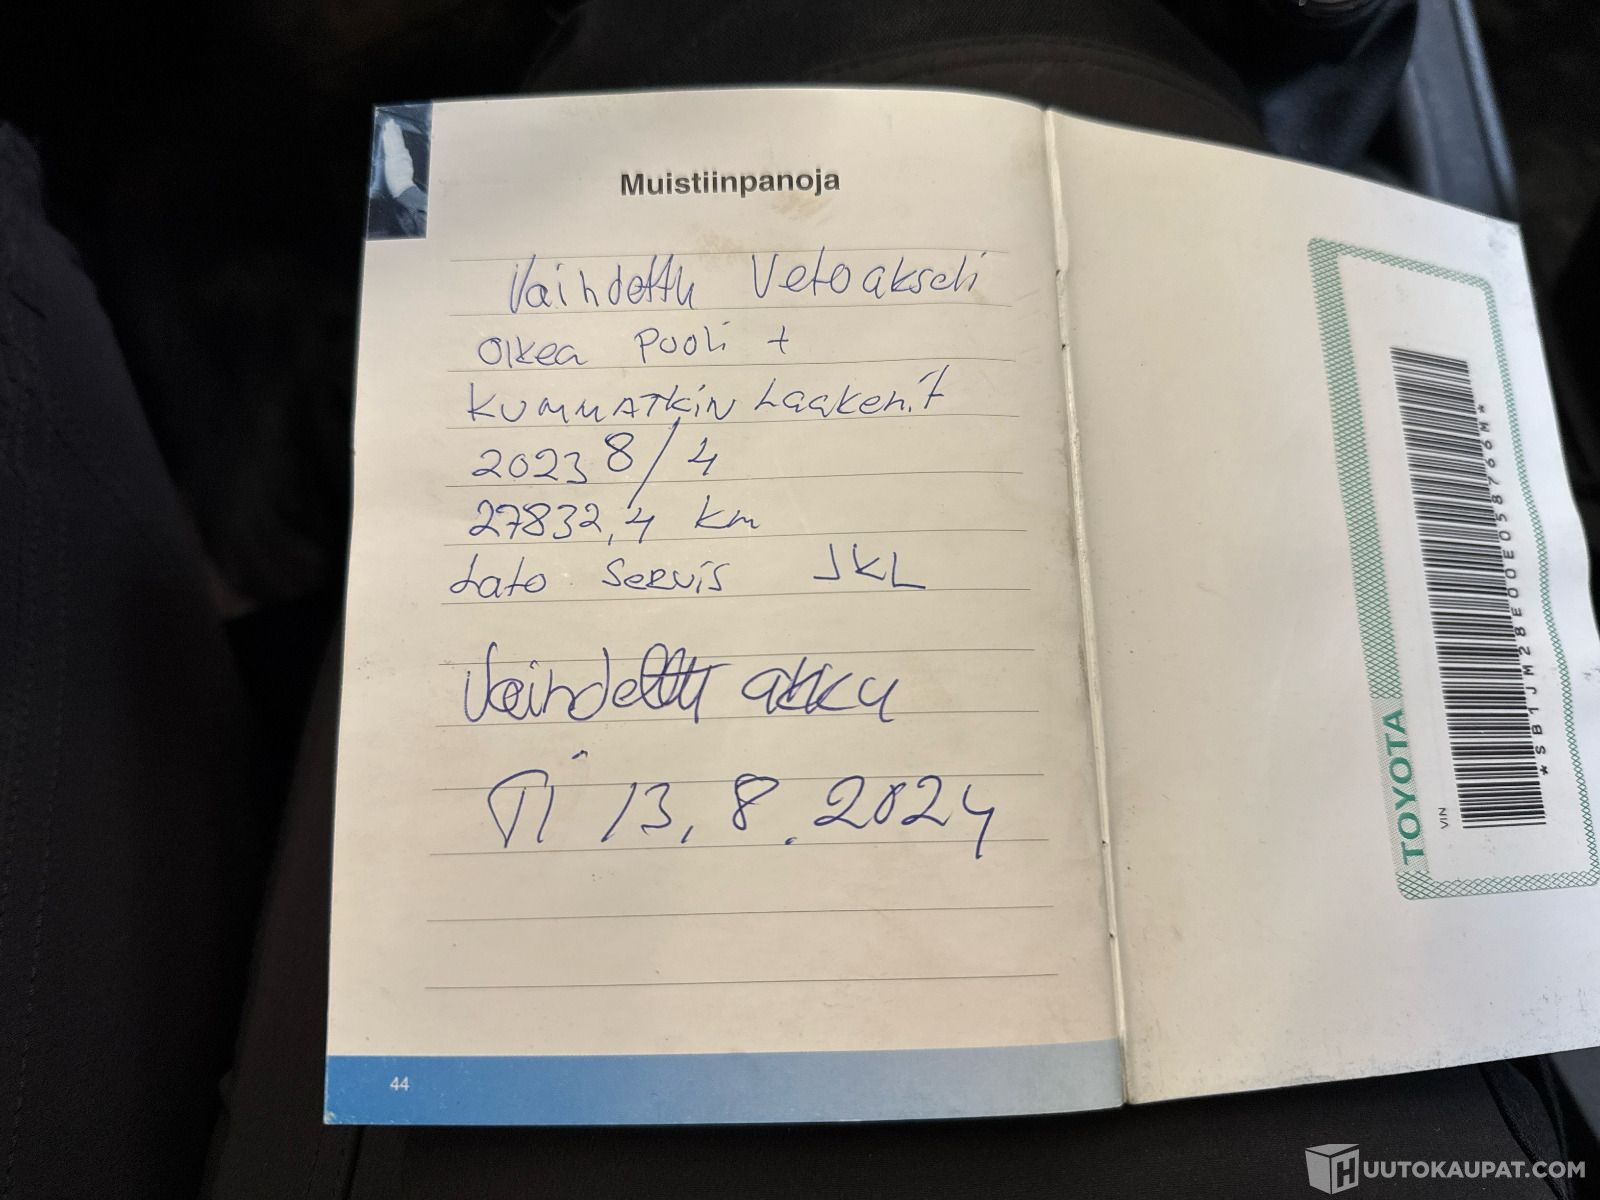 Muistiinpanoja
Vaihdettu Vetoakseli
oikea Puoli +
KUMMATKIN Laakerit
2023 8/4
27832,4 km
Lato Servis JKL
Vaihdettu akku
TI 13.8.2024
44
TOYOTA
VIN
*SB1JM28E00E058766M*
HUUTOKAUPAT.COM